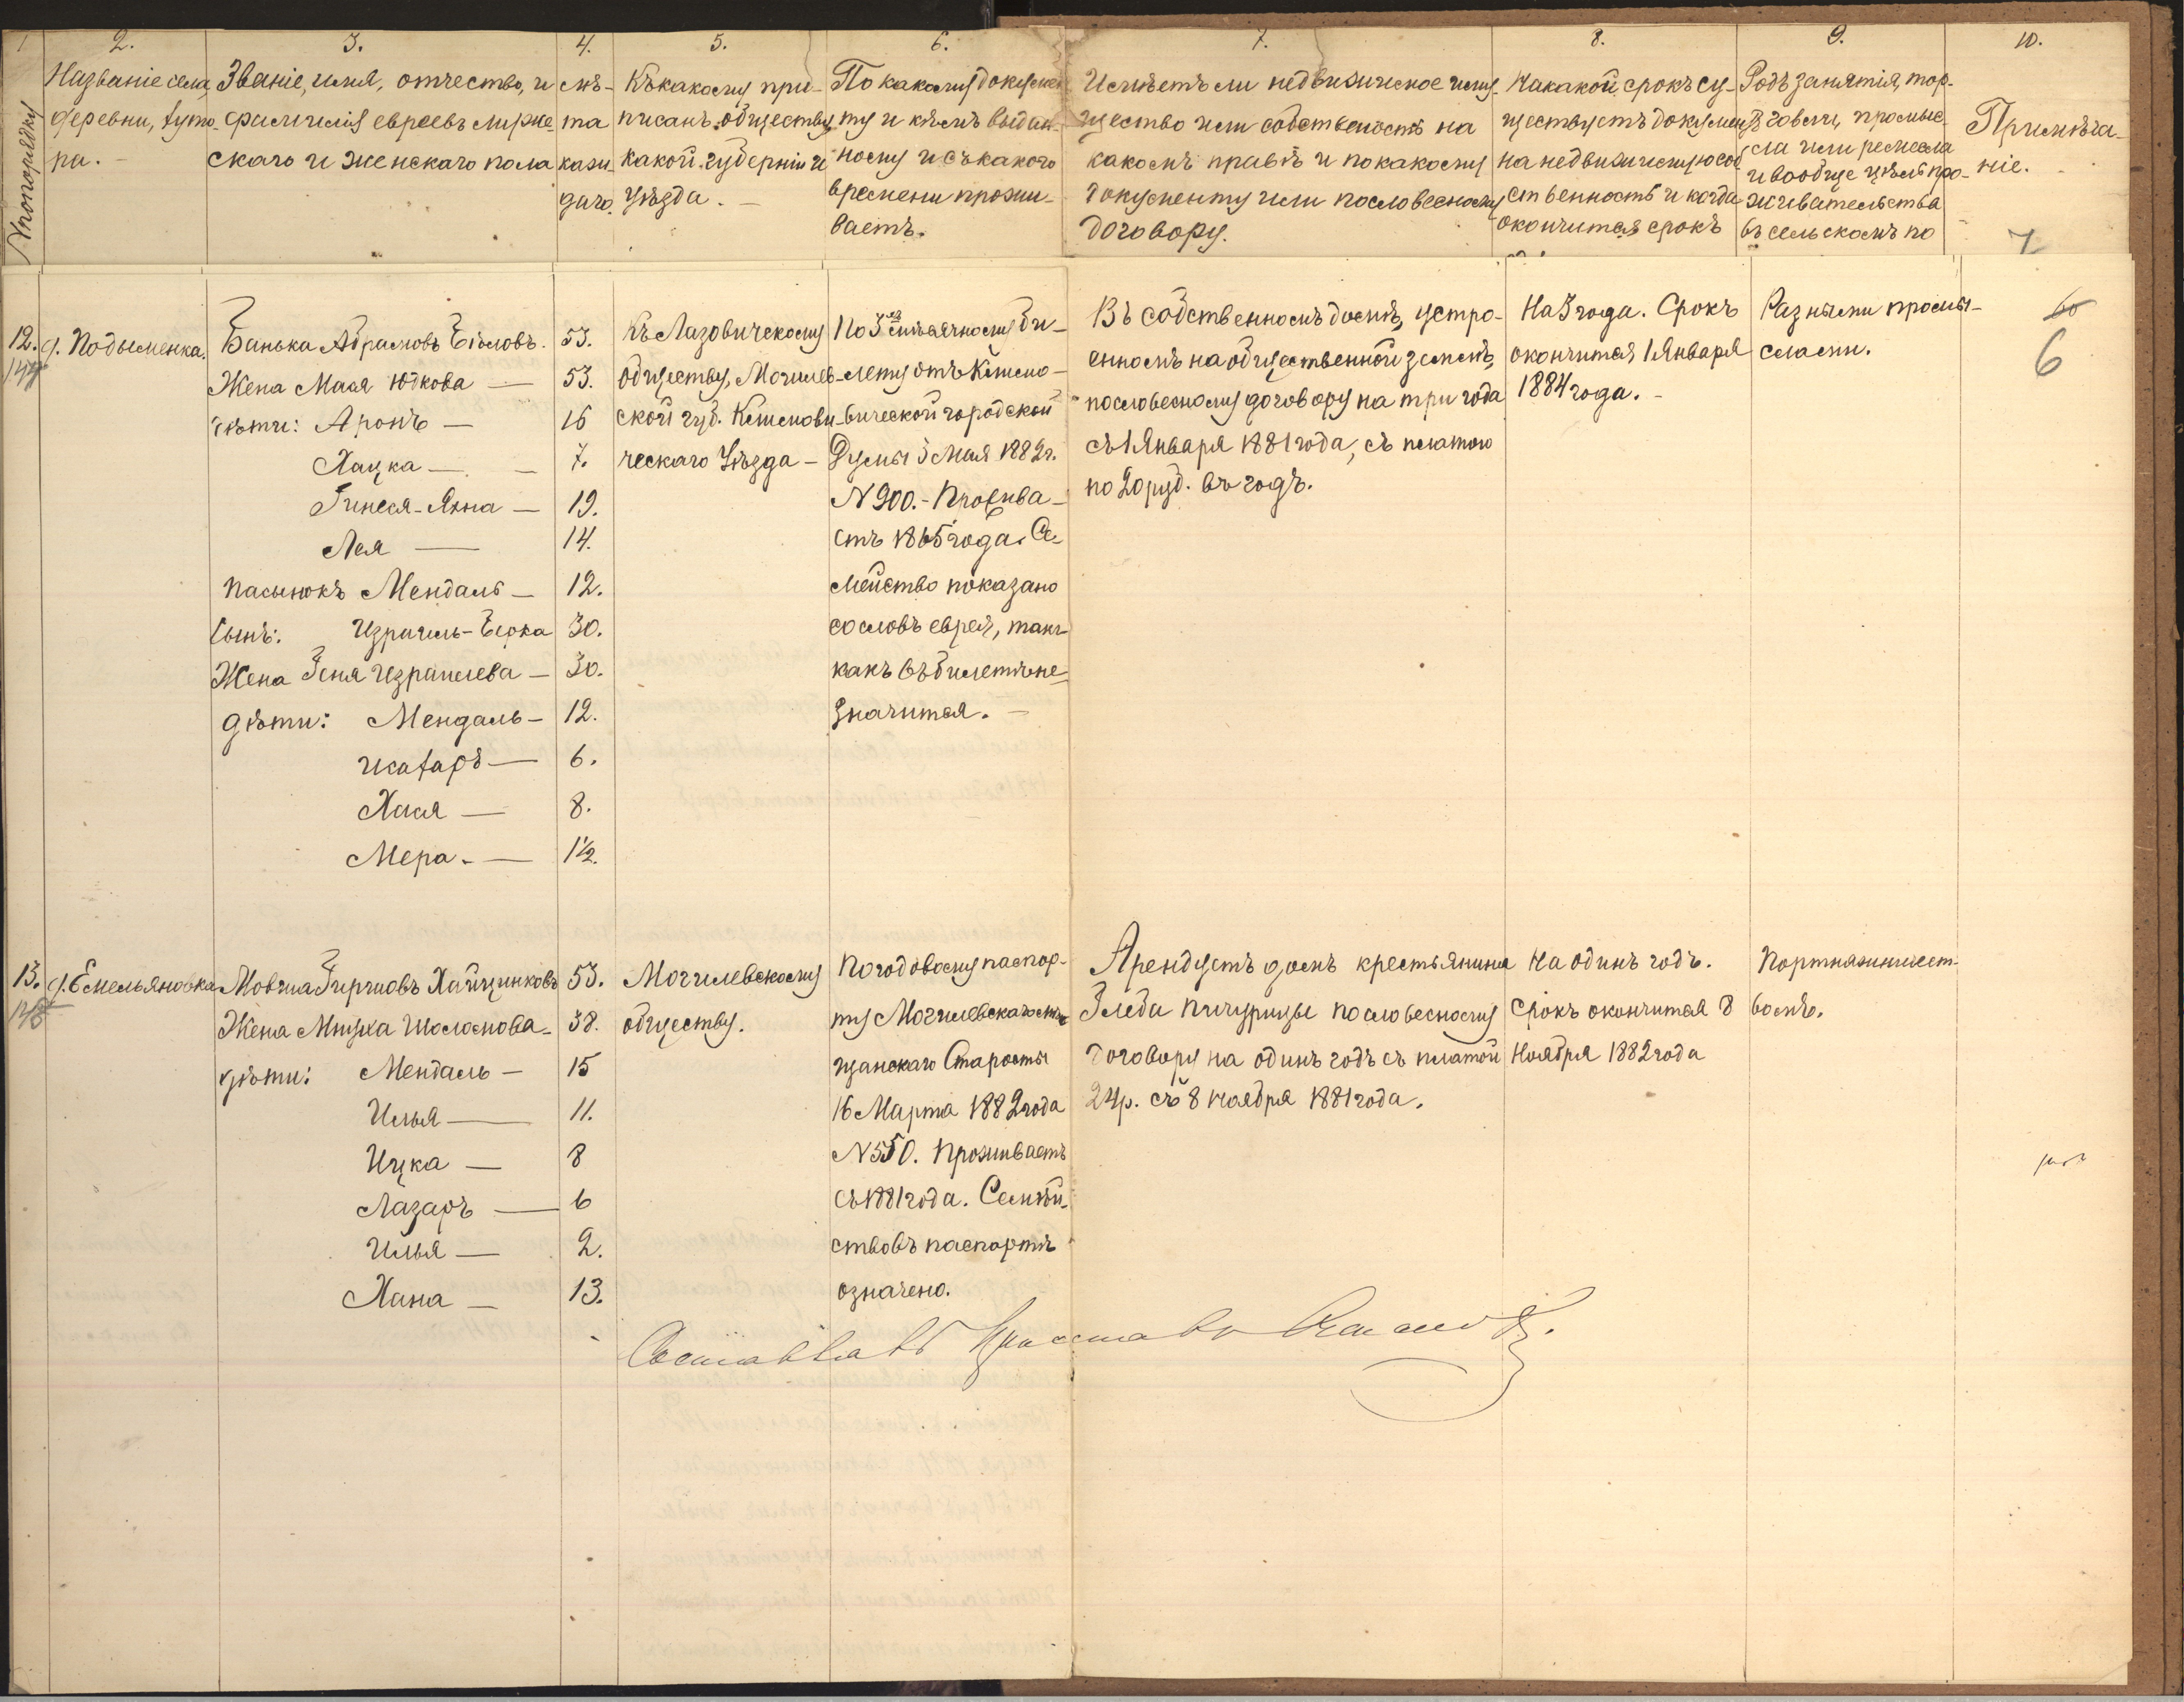 1 2. 3. 4. 5. 6. 7. 8. 9. 10.
№ по порядку
Названіе села,
деревни, хуто-
ра. -
Званіе, имя, отчество, и
фамилія евреевъ мужес-
скаго и женскаго пола
лѣ-
та
каж-
даго.
Къ какому при-
писанъ обществу,
какой губерніи и
уѣзда. -
По какому докумен-
ту и кѣмъ выдан-
ному и съ какого
времени прожи-
ваетъ.
Имѣетъ ли недвижимое иму-
щество или собственость на
какомъ правѣ и по какому
документу или по словесному
договору.
На какой срокъ су-
ществуетъ документъ
на недвижимую соб-
ственность и когда
окончится срокъ
Родъ занятія, тор-
говли, промыс-
ла или ремесла
и вообще цѣль про-
живательства
въ сельскомъ по
Примѣча-
ніе.
7
12.
144
д. Подыменка.
Банька Абрамовъ
Жена Мася Юдкова —
дѣти: Аронъ —
Хацка — —
Гинеся-Янна —
Лея —
пасынокъ Мендаль —
сынъ: Израиль-Берка
Жена Геня Израилева —
дѣти: Мендаль —
Хася —
Мера. —
53.
53.
16
7.
19.
14.
12.
30.
30.
12.
6.
8.
1½.
Къ Лазовичскому
обществу, Могилев-
ской губ. Климови-
ческаго Уѣзда —
По 5 мѣсячному би-
лету отъ Климо-
вической городской
Думы 5 Мая 1882 г.
N 900. - Прожива-
етъ 1865 года. Се-
мейство показано
со словъ еврея, такъ
какъ въ билетѣ не
значится. —
Въ собственномъ домѣ, устро-
енномъ на общественной землѣ,
по словесному договору на три года
съ 1 Января 1881 года, съ платою
по 20 руб. въ годъ.
На 3 года. Срокъ
окончится 1 Января
1884 года. -
Разными промы-
слами.
6
13.
145
д. Емельяновка
Мовша Гиршовъ Хайцинковъ
Жена Мицка Шоломова —
дѣти: Мендаль —
Илья —
Ицка —
Лазаръ —
Илья —
Хана —
53.
38.
15
11.
8
6
2.
13.
Могилевскому
обществу.
По годовому паспор-
ту Могилевскаго мѣ-
щанскаго Старосты
16 Марта 1882 года
N 550. Проживаетъ
съ 1881 года. Семѣй-
ство въ паспортѣ
означено.
Арендуетъ домъ крестьянина
Глеба Пичурицы по словесному
договору на одинъ годъ съ платой
24 р. съ 8 ноября 1881 года.
На одинъ годъ.
Срокъ окончится 8
Ноября 1882 года
Портняжничест-
вомъ.
Составилъ Приставъ